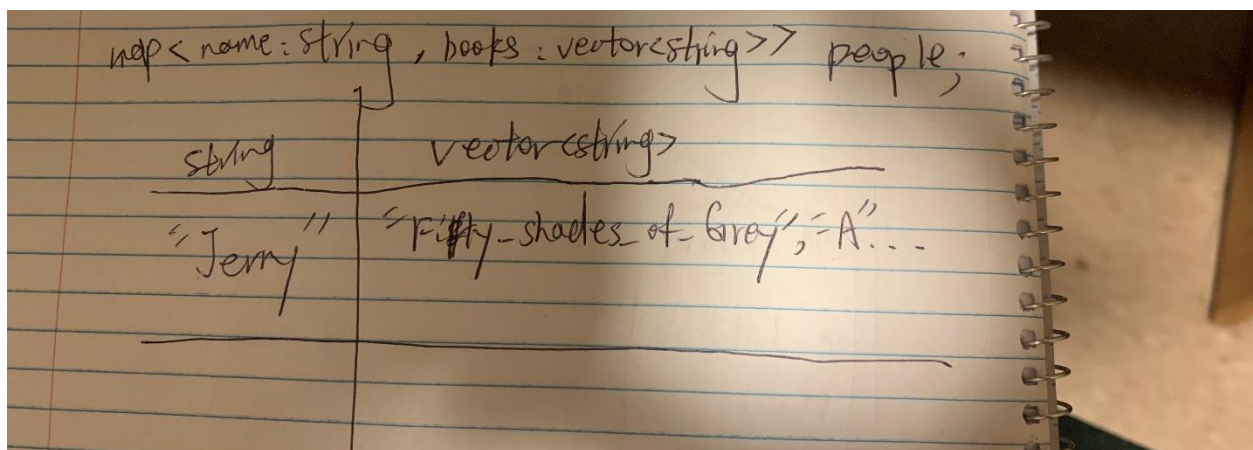 map<name:string, books:vector<string>> people;
string vector<string>
"Jerry" "Fifty_shades_of_Grey", "A"....